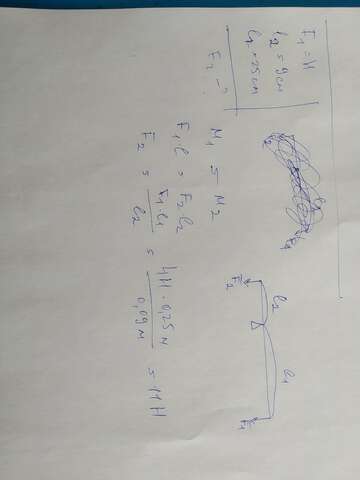 F₁ = 4H
l₂ = 9 см
l₁ = 25 см
F₂ - ?
M₁ = M₂
F₁ l₁ = F₂ l₂
F₂ = F₁·l₁ / l₂ = 4H · 0,25 м / 0,09 м = 11 H
l₂ l₁
F₂ F₁